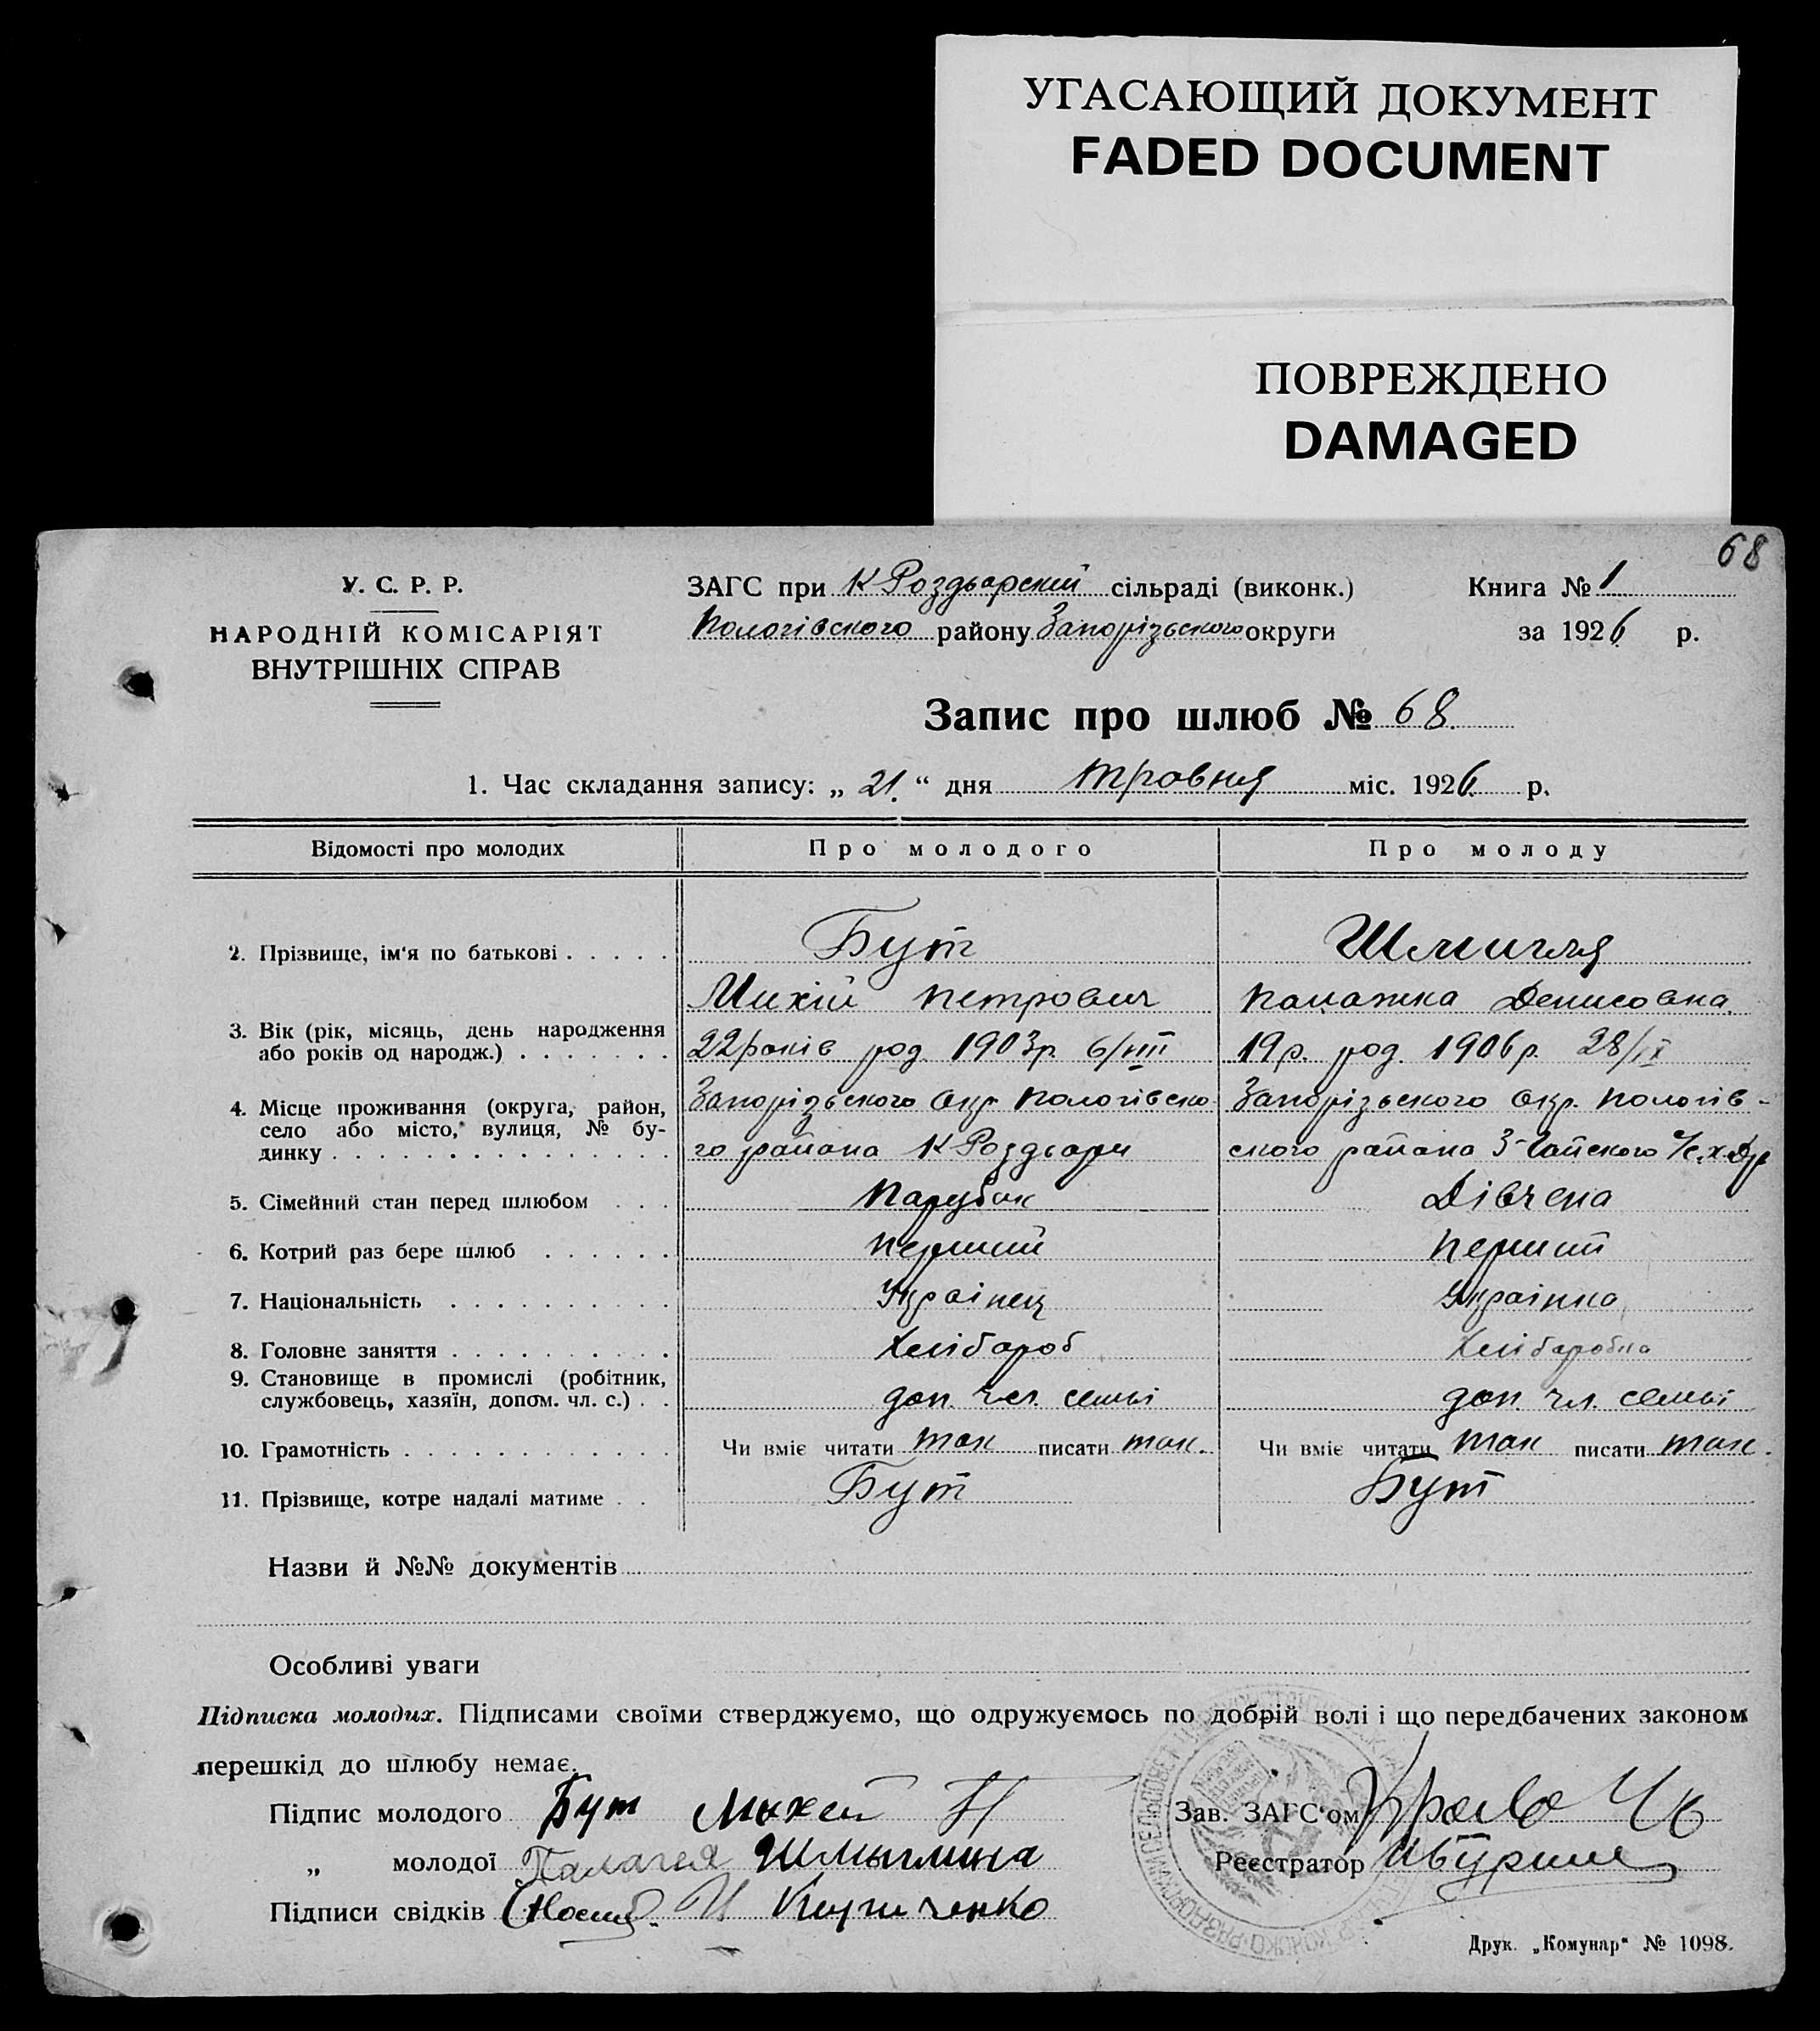 УГАСАЮЩИЙ ДОКУМЕНТ
FADED DOCUMENT
ПОВРЕЖДЕНО
DAMAGED
68
У. С. Р. Р.
НАРОДНІЙ КОМІСАРІЯТ
ВНУТРІШНІХ СПРАВ
ЗАГС при К Роздьорский сільраді (виконк.)
Пологівського району Запорізьського округи
Книга № 1
за 1926 р.
Запис про шлюб № 68.
1. Час складання запису: „ 21. “ дня травня міс. 1926. р.
Відомості про молодих Про молодого Про молоду
2. Прізвище, ім'я по батькові Бут Шмигля
Михій Петрович Палажка Денисовна.
3. Вік (рік, місяць, день народження
або років од народж.) 22 років род. 1903р. 6/VIII 19р. род. 1906р. 28/IX
4. Місце проживання (округа, район,
село або місто, вулиця, № бу-
динку
Запорізьского Окр. Пологівско- Запорізьского Окр. Пологів-
го района К Роздьори ского района
5. Сімейний стан перед шлюбом Парубак Дівчена
6. Котрий раз бере шлюб перший перший
7. Національність Українец Українка
8. Головне заняття Хлібароб Хлібаробка
9. Становище в промислі (робітник,
службовець, хазяїн, допом. чл. с.) доп. чл. семьі доп. чл. семьі
10. Грамотність Чи вміє читати так писати так. Чи вміє читати так писати так.
11. Прізвище, котре надалі матиме Бут Бут
Назви й №№ документів
Особливі уваги
Підписка молодих. Підписами своїми стверджуємо, що одружуємось по добрій волі і що передбачених законом
перешкід до шлюбу немає.
Підпис молодого Бут Михей П
„ молодої Палагея Шмыглина
Підписи свідків
Зав. ЗАГС'ом
Реєстратор
Друк. „Комунар“ № 1098.